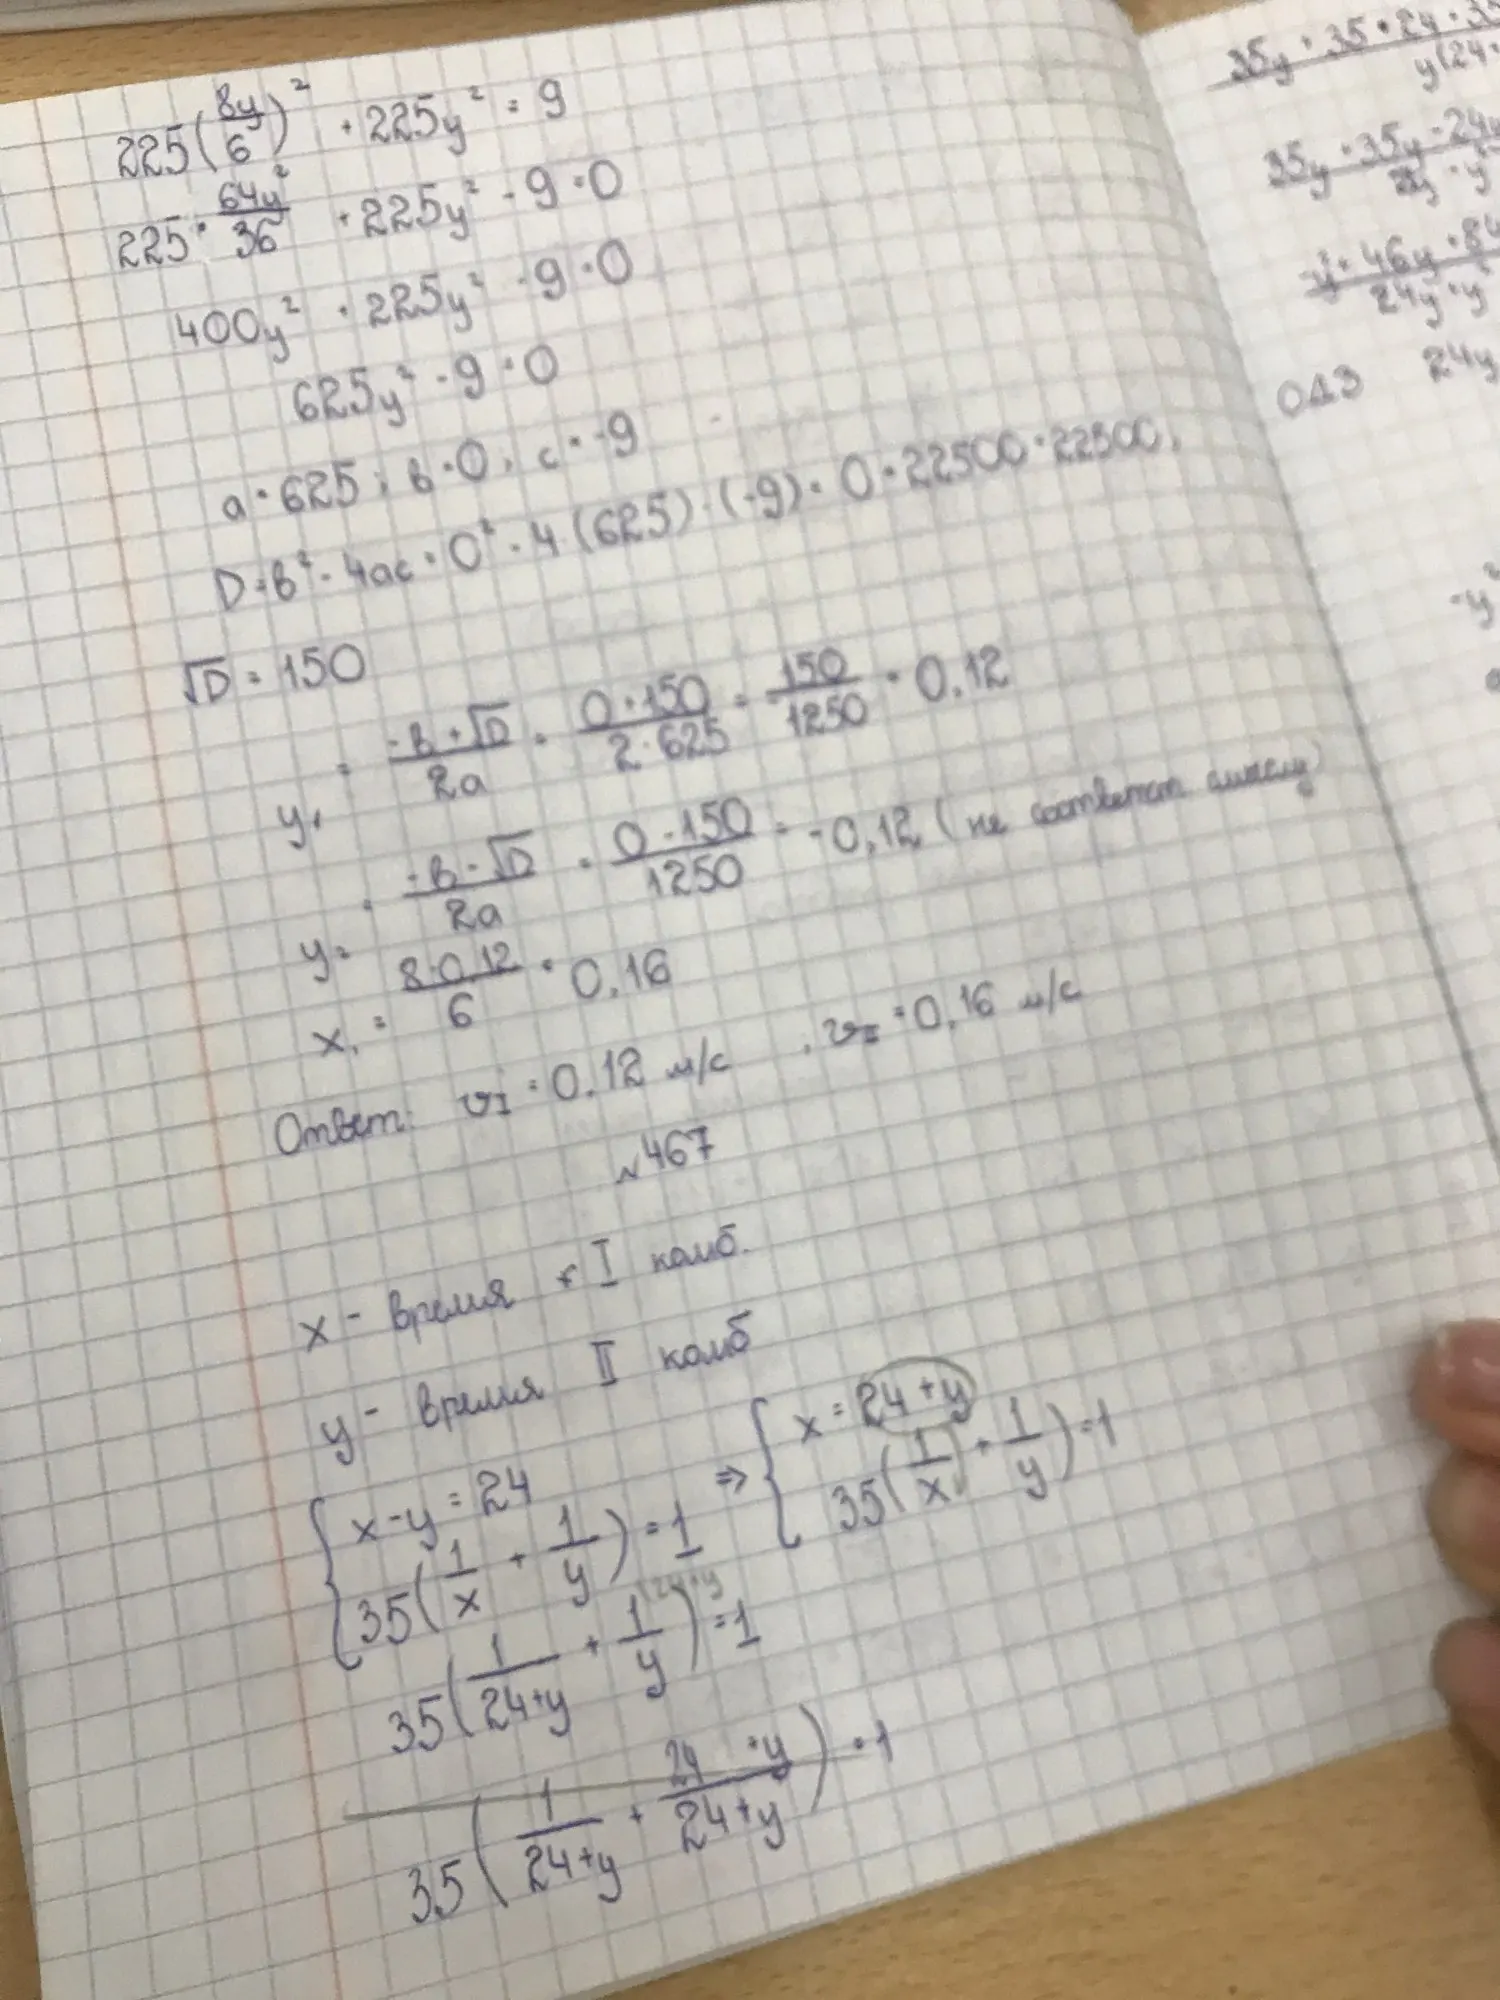 225(8y/6)² + 225y² = 9
225 · 64y²/36 + 225y² - 9 = 0
400y² + 225y² - 9 = 0
625y² - 9 = 0
a = 625; в = 0; c = -9
D = в² - 4ac = 0² - 4·(625)·(-9) = 0 + 22500 = 22500.
√D = 150
y₁ = (-в + √D)/2a = (0 + 150)/(2·625) = 150/1250 = 0,12
y₂ = (-в - √D)/2a = (0 - 150)/1250 = -0,12 (не соответст смыслу)
x₁ = 8·0,12/6 = 0,16
Ответ: v_I = 0,12 м/с, v_II = 0,16 м/с
№467
x - время I комб.
y - время II комб
{ x - y = 24 ⇒ { x = 24 + y
35(1/x + 1/y) = 1 35(1/x + 1/y) = 1
35(1/(24+y) + 1/y) = 1
35(1/(24+y) + 24+y/(24+y)) = 1
35y + 35 · 24 + 35
y(24 +
35y + 35y - 24y
24y + y²
-y² + 46y + 84
24y + y²
ОДЗ 24y
-y²